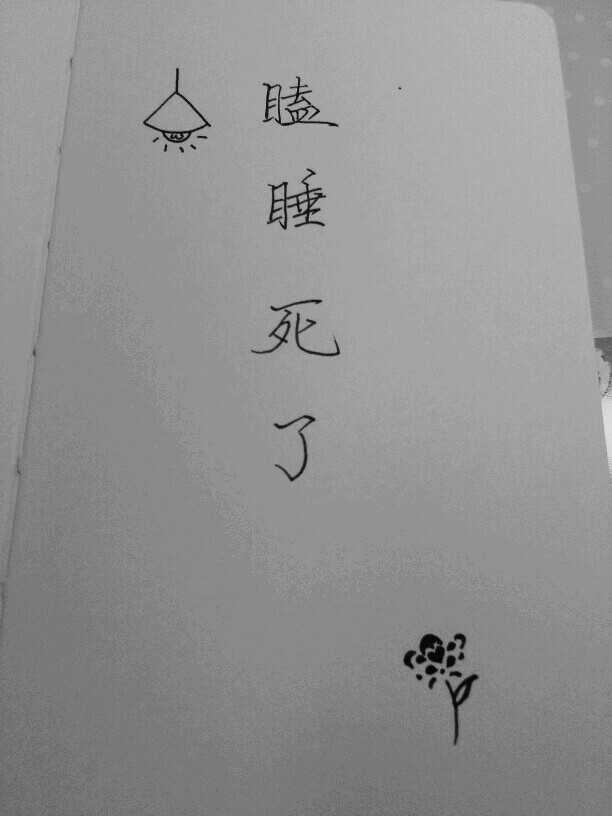 瞌睡死了